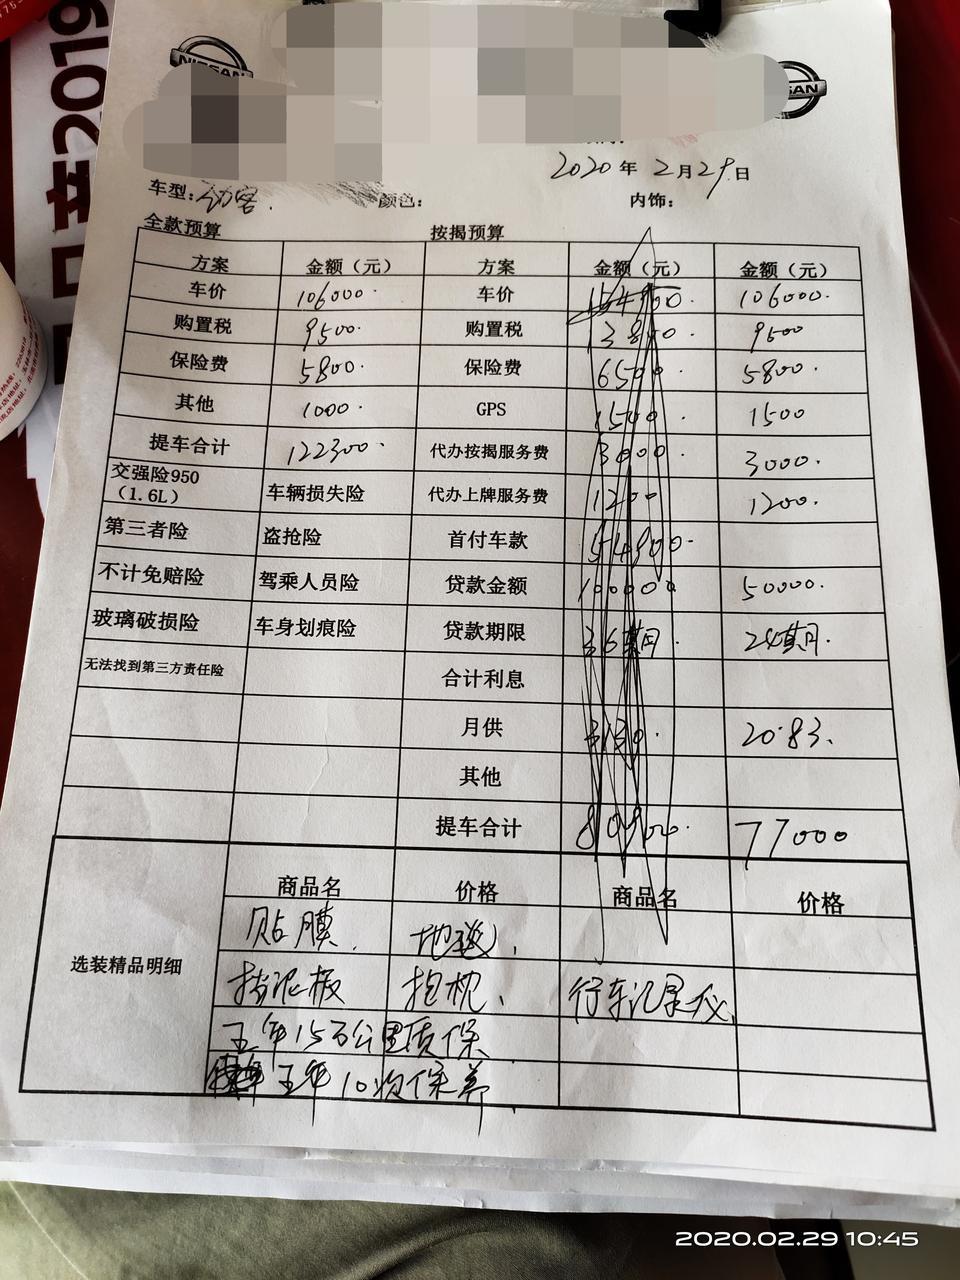 2019
NISSAN
SAN
2020年2月29日
车型：劲客. 颜色： 内饰：
全款预算 按揭预算
方案 金额（元） 方案 金额（元） 金额（元）
车价 106000. 车价 154900. 106000.
购置税 9500. 购置税 13800. 9500
保险费 5800. 保险费 6500. 5800.
其他 1000. GPS 1500. 1500
提车合计 122300. 代办按揭服务费 3000. 3000.
交强险950（1.6L） 车辆损失险 代办上牌服务费 1200 1200.
第三者险 盗抢险 首付车款 54900.
不计免赔险 驾乘人员险 贷款金额 100000 50000.
玻璃破损险 车身划痕险 贷款期限 36期. 24期.
无法找到第三方责任险 合计利息
月供 3130. 2083.
其他
提车合计 80900. 77000
选装精品明细 商品名 价格 商品名 价格
贴膜. 地毯.
挡泥板 抱枕、 行车记录仪.
五年15万公里质保
五年10次保养.
2020.02.29 10:45